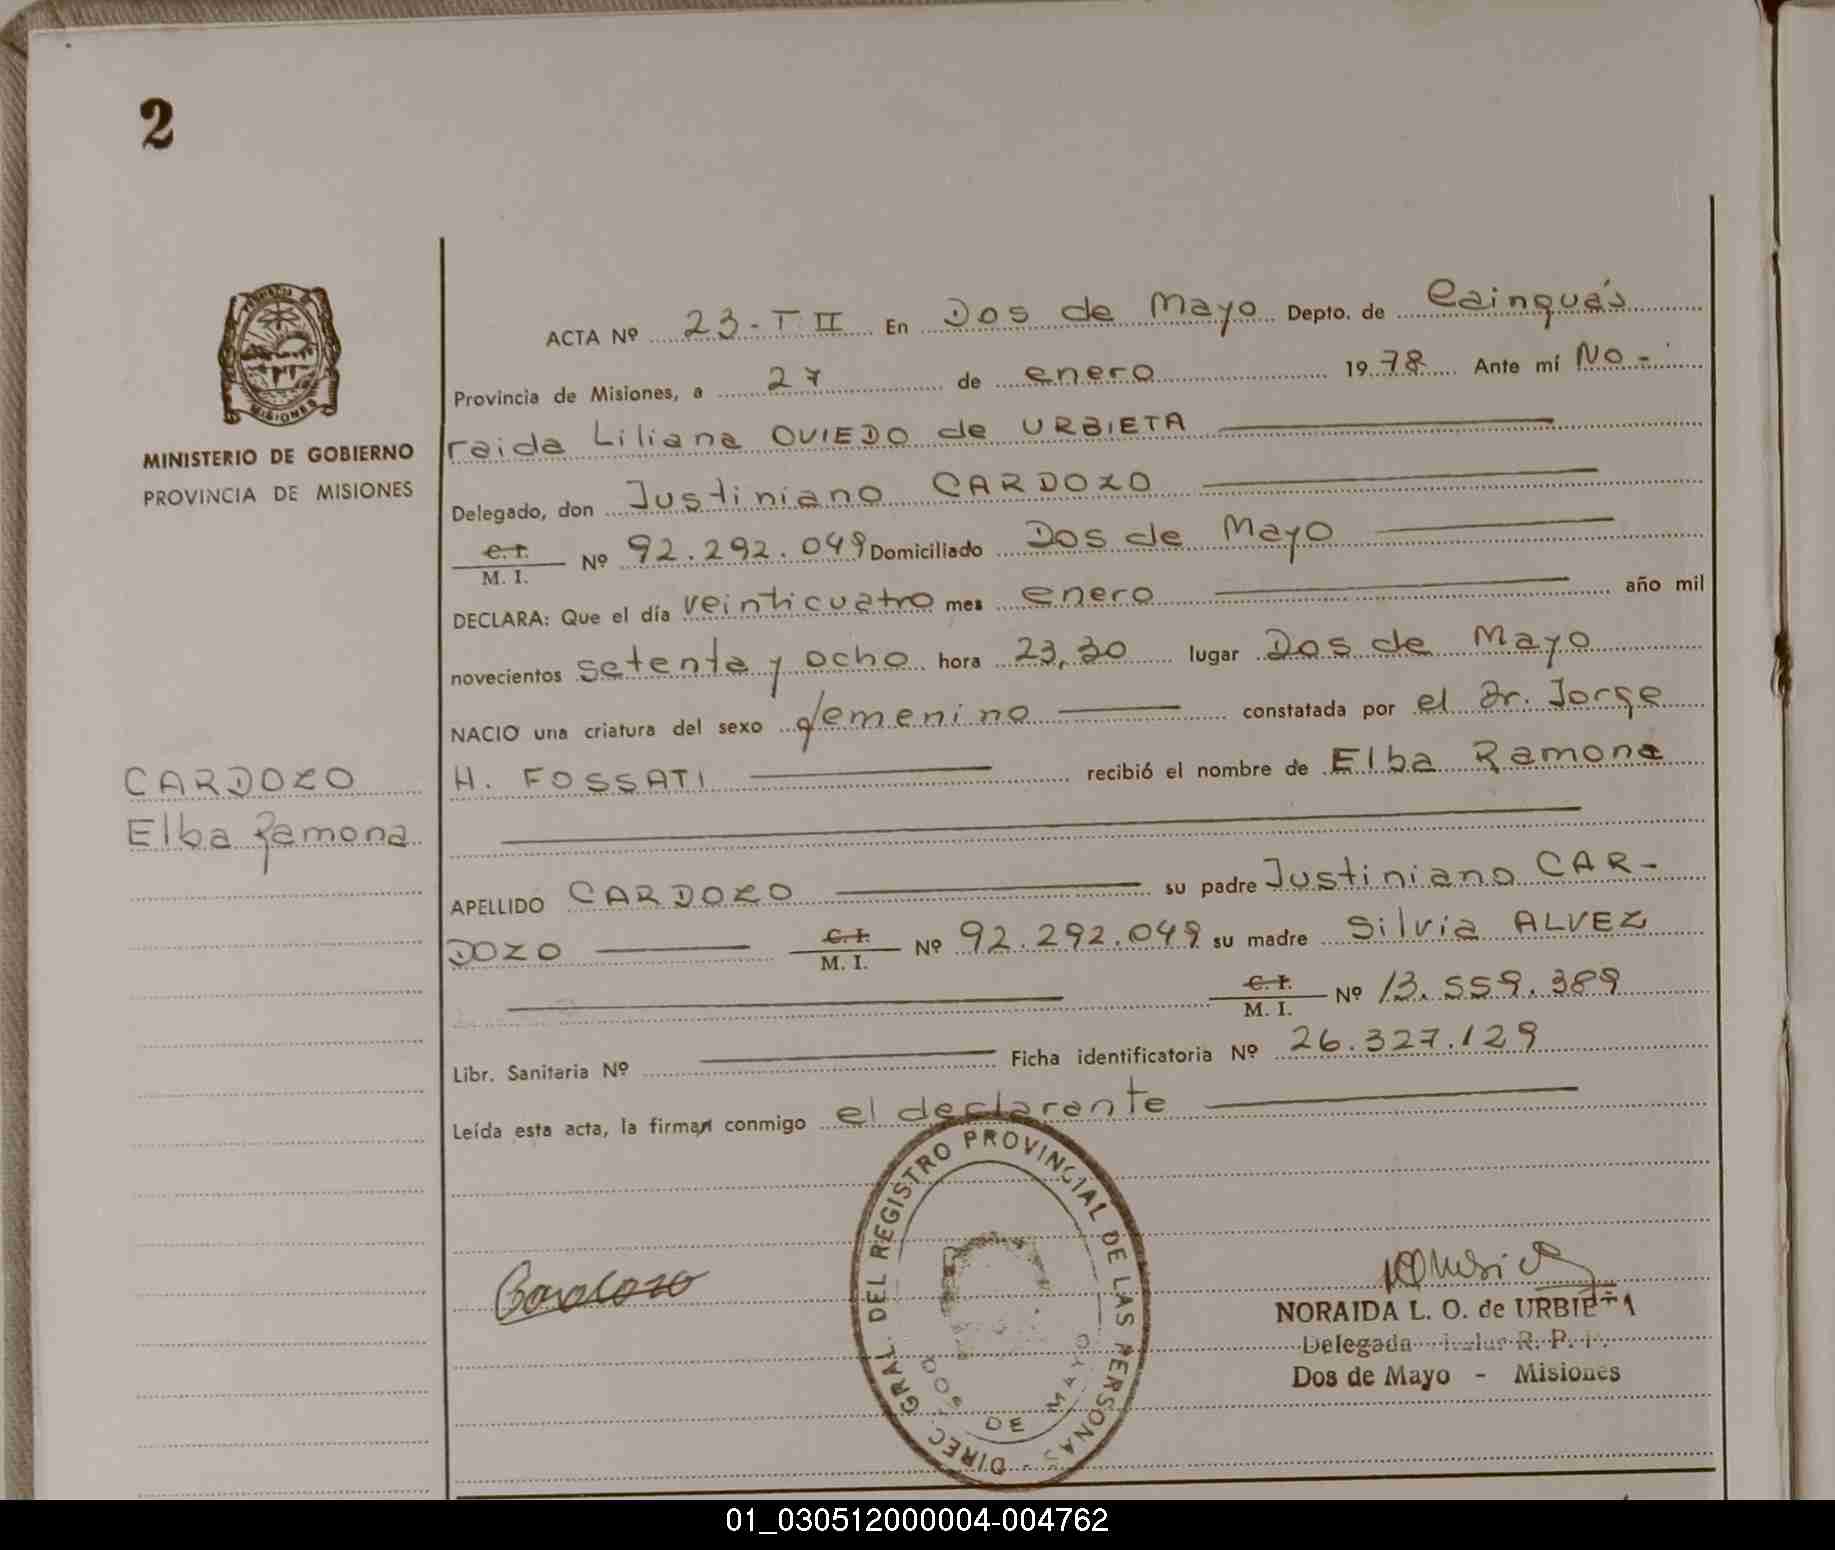 2
ACTA Nº 23-T II En Dos de Mayo Depto. de Cainguás
Provincia de Misiones, a 27 de enero 1978 Ante mí No-
raida Liliana OVIEDO de URBIETA
MINISTERIO DE GOBIERNO
PROVINCIA DE MISIONES
Delegado, don Justiniano CARDOZO
C.I. M. I. Nº 92.292.049 Domiciliado Dos de Mayo
DECLARA: Que el día veinticuatro mes enero año mil
novecientos setenta y ocho hora 23,30 lugar Dos de Mayo
NACIO una criatura del sexo femenino constatada por el Dr. Jorge
H. FOSSATI recibió el nombre de Elba Ramona
CARDOZO
Elba Ramona
APELLIDO CARDOZO su padre Justiniano CAR-
DOZO C.I. M. I. Nº 92.292.049 su madre Silvia ALVEZ
C.I. M. I. Nº 13.559.389
Libr. Sanitaria Nº Ficha identificatoria Nº 26.327.129
Leída esta acta, la firman conmigo el declarante
DIREC. GRAL. DEL REGISTRO PROVINCIAL DE LAS PERSONAS
DOS DE MAYO
Cardozo
NORAIDA L. O. de URBIETA
Delegada R. P. P.
Dos de Mayo - Misiones
MISIONES
01_030512000004-004762